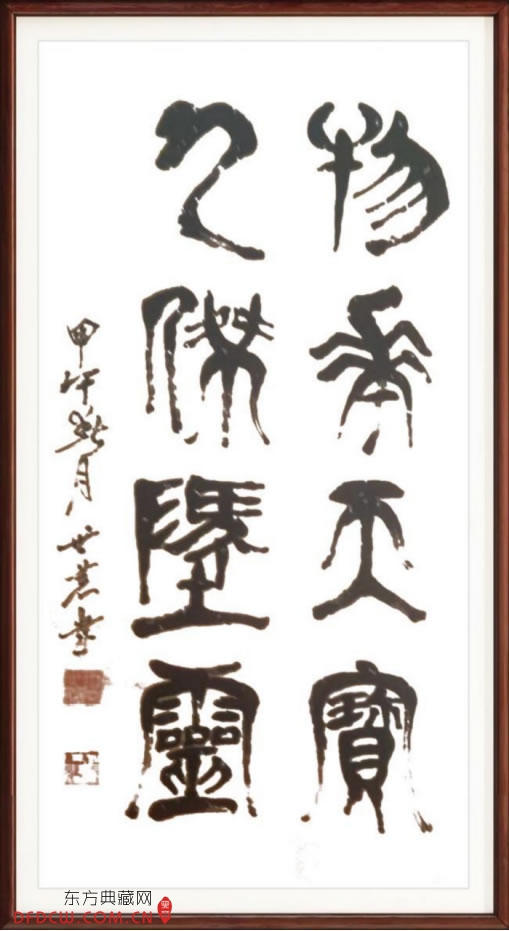 物華天寶
人傑墬靈
甲午秋月 世 書
东方典藏网
DFDCW.COM.CN